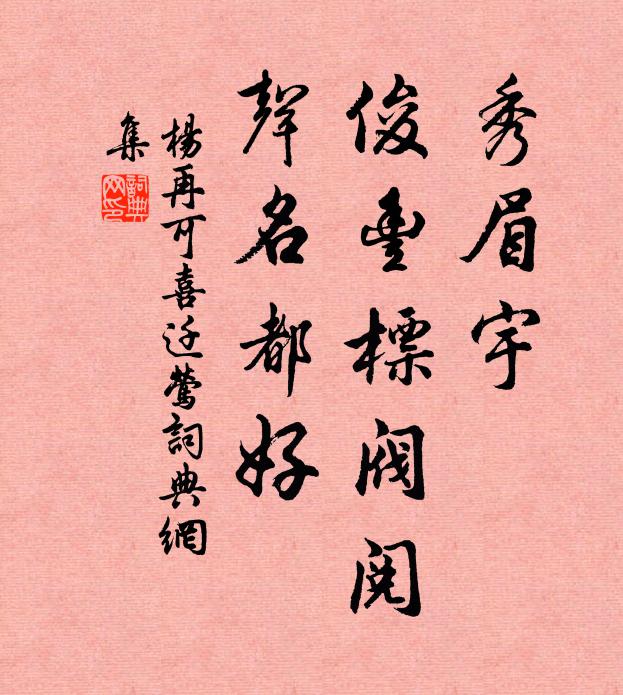 秀眉宇
俊豊標閥閲
聲名都好
楊再可喜迁鶯詞典網
集
詞典
网印